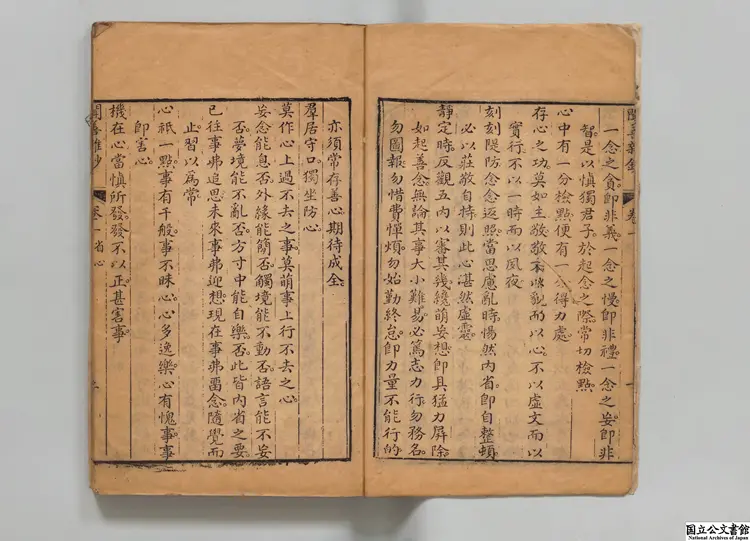 一念之貪即非義一念之慢即非禮一念之妄即非
智是以慎獨君子於起念之際常切檢點
心中有一分檢點便有一分得力處
存心之功莫如主敬敬不以貌而以心不以虛文而以
實行不以一時而以夙夜
刻刻隄防念念返照當思慮亂時惕然內省即自整頓
必以莊敬自持則此心湛然虛靈
靜定時反觀五內以審其幾纔萌妄想即具猛力屏除
如起善念無論其事大小難易必篤志力行勿務名
勿圖報勿惜費憚煩勿始勤終怠即力量不能行的
卷一
亦須常存善心期待成全
羣居守口獨坐防心
莫作心上過不去之事莫萌事上行不去之心
妄念能息否外緣能簡否觸境能不動否語言能不妄
否夢境能不亂否方寸中能自樂否此皆內省之要
已往事弗追思未來事弗迎想現在事弗畱念隨覺而
止習以為常
心祇一點事有千般事不昧心心多逸樂心有愧事事
即害心
機在心當慎所發發不以正甚害事
卷一 省心
国立公文書館
National Archives of Japan